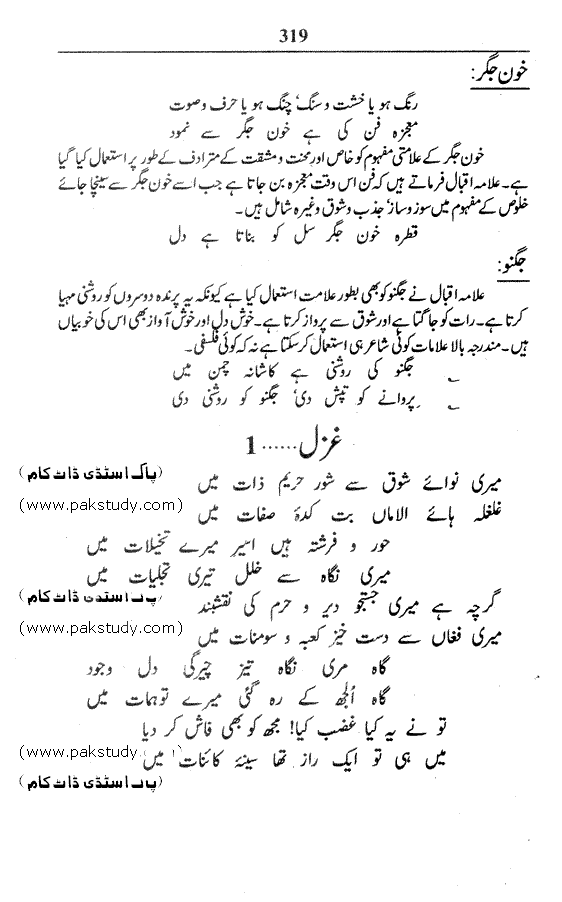 319
خون جگر:
رنگ ہو یا خشت و سنگ' چنگ ہو یا حرف و صوت
معجزہ فن کی ہے خون جگر سے نمود
خون جگر کے علامتی مفہوم کو خاص اور محنت و مشقت کے مترادف کے طور پر استعمال کیا گیا
ہے۔ علامہ اقبال فرماتے ہیں کہ فن اس وقت معجزہ بن جاتا ہے جب اسے خون جگر سے سینچا جائے
خلوص کے مفہوم میں سوز و ساز' جذب و شوق وغیرہ شامل ہیں۔
قطرہ خون جگر سل کو بناتا ہے دل
جگنو:
علامہ اقبال نے جگنو کو بھی بطور علامت استعمال کیا ہے کیونکہ یہ پرندہ دوسروں کو روشنی مہیا
کرتا ہے۔ رات کو جاگتا ہے اور شوق سے پرواز کرتا ہے۔ خوش دل اور خوش آواز بھی اس کی خوبیاں
ہیں۔ مندرجہ بالا علامات کوئی شاعر ہی استعمال کر سکتا ہے نہ کہ کوئی فلسفی۔
جگنو کی روشنی ہے کاشانہ چمن میں
پروانے کو تپش دی' جگنو کو روشنی دی
غزل ...... 1
میری نوائے شوق سے شور حریم ذات میں
(پاک اسٹڈی ڈاٹ کام)
غلغلہ ہائے الاماں بت کدۂ صفات میں
(www.pakstudy.com)
حور و فرشتہ ہیں اسیر میرے تخیلات میں
میری نگاہ سے خلل تیری تجلیات میں
گرچہ ہے میری جستجو دیر و حرم کی نقشبند
(پاک اسٹڈی ڈاٹ کام)
میری فغاں سے دست خیز کعبہ و سومنات میں
(www.pakstudy.com)
گاہ مری نگاہ تیز چیرگی دل وجود
گاہ اُلجھ کے رہ گئی میرے توہمات میں
تو نے یہ کیا غضب کیا! مجھ کو بھی فاش کر دیا
میں ہی تو ایک راز تھا سینۂ کائنات' میں
(www.pakstudy.com)
(پاک اسٹڈی ڈاٹ کام)